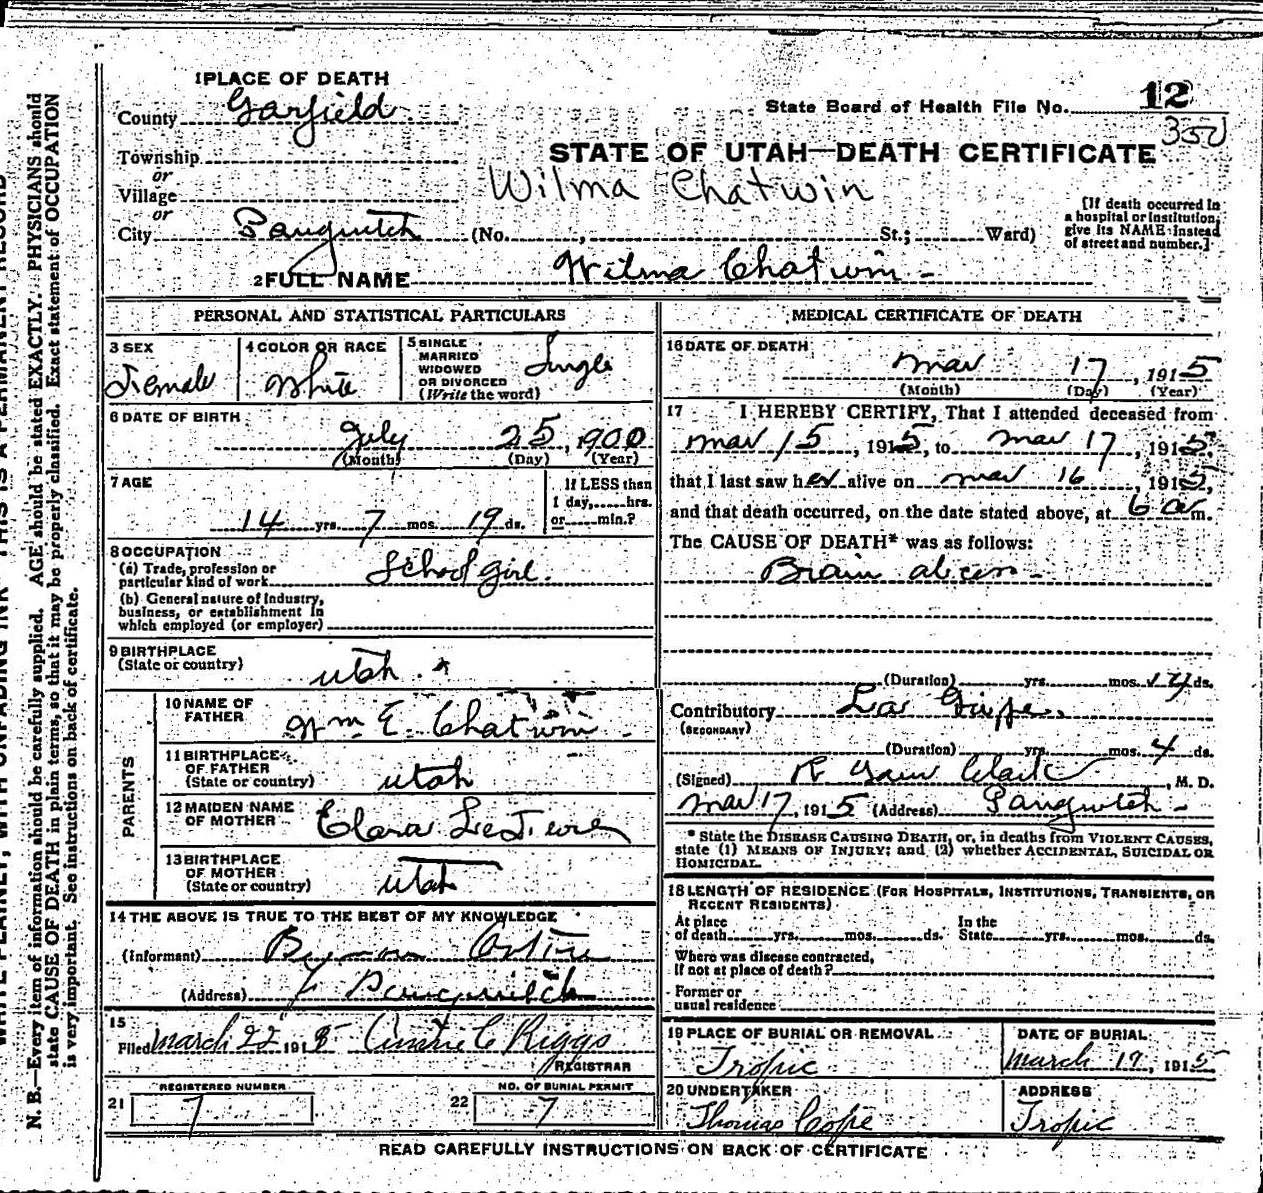 1 PLACE OF DEATH
County Garfield
State Board of Health File No. 12
350
Township
or
Village
or
City Panguitch (No. , St.; Ward)
STATE OF UTAH—DEATH CERTIFICATE
Wilma Chatwin
[If death occurred in
a hospital or institution,
give its NAME instead
of street and number.]
2 FULL NAME Wilma Chatwin
PERSONAL AND STATISTICAL PARTICULARS
3 SEX
Female
4 COLOR OR RACE
White
5 SINGLE
MARRIED
WIDOWED
OR DIVORCED
(Write the word)
Single
6 DATE OF BIRTH
July 25, 1900
(Month) (Day) (Year)
7 AGE
14 yrs. 7 mos. 19 ds.
If LESS than
1 day, hrs.
or min.?
8 OCCUPATION
(a) Trade, profession or
particular kind of work School girl.
(b) General nature of Industry,
business, or establishment in
which employed (or employer)
9 BIRTHPLACE
(State or country) Utah.
PARENTS
10 NAME OF
FATHER Wm E. Chatwin
11 BIRTHPLACE
OF FATHER
(State or country) Utah
12 MAIDEN NAME
OF MOTHER Clara LeFevre
13 BIRTHPLACE
OF MOTHER
(State or country) Utah
14 THE ABOVE IS TRUE TO THE BEST OF MY KNOWLEDGE
(Informant)
(Address) Panguitch
15
Filed March 22 191 Riggs
REGISTRAR
REGISTERED NUMBER
21 7
NO. OF BURIAL PERMIT
22 7
MEDICAL CERTIFICATE OF DEATH
16 DATE OF DEATH
Mar 17, 1915
(Month) (Day) (Year)
17 I HEREBY CERTIFY, That I attended deceased from
Mar 15, 1915, to Mar 17, 1915,
that I last saw her alive on Mar 16, 1915,
and that death occurred, on the date stated above, at 6 a m.
The CAUSE OF DEATH* was as follows:
Brain abcess
(Duration) yrs. mos. ds.
Contributory La Grippe.
(SECONDARY)
(Duration) yrs. mos. 4 ds.
(Signed) R Clark, M. D.
Mar 17, 1915 (Address) Panguitch
* State the DISEASE CAUSING DEATH, or, in deaths from VIOLENT CAUSES,
state (1) MEANS OF INJURY; and (2) whether ACCIDENTAL, SUICIDAL OR
HOMICIDAL.
18 LENGTH OF RESIDENCE (FOR HOSPITALS, INSTITUTIONS, TRANSIENTS, OR
RECENT RESIDENTS)
At place
of death yrs. mos. ds.
In the
State yrs. mos. ds.
Where was disease contracted,
if not at place of death?
Former or
usual residence
19 PLACE OF BURIAL OR REMOVAL
Tropic
DATE OF BURIAL
March 19, 1915
20 UNDERTAKER
Thomas Cope
ADDRESS
Tropic
READ CAREFULLY INSTRUCTIONS ON BACK OF CERTIFICATE
WRITE PLAINLY, WITH UNFADING INK—THIS IS A PERMANENT RECORD
N. B.—Every item of information should be carefully supplied. AGE should be stated EXACTLY. PHYSICIANS should
state CAUSE OF DEATH in plain terms, so that it may be properly classified. Exact statement of OCCUPATION
is very important. See instructions on back of certificate.